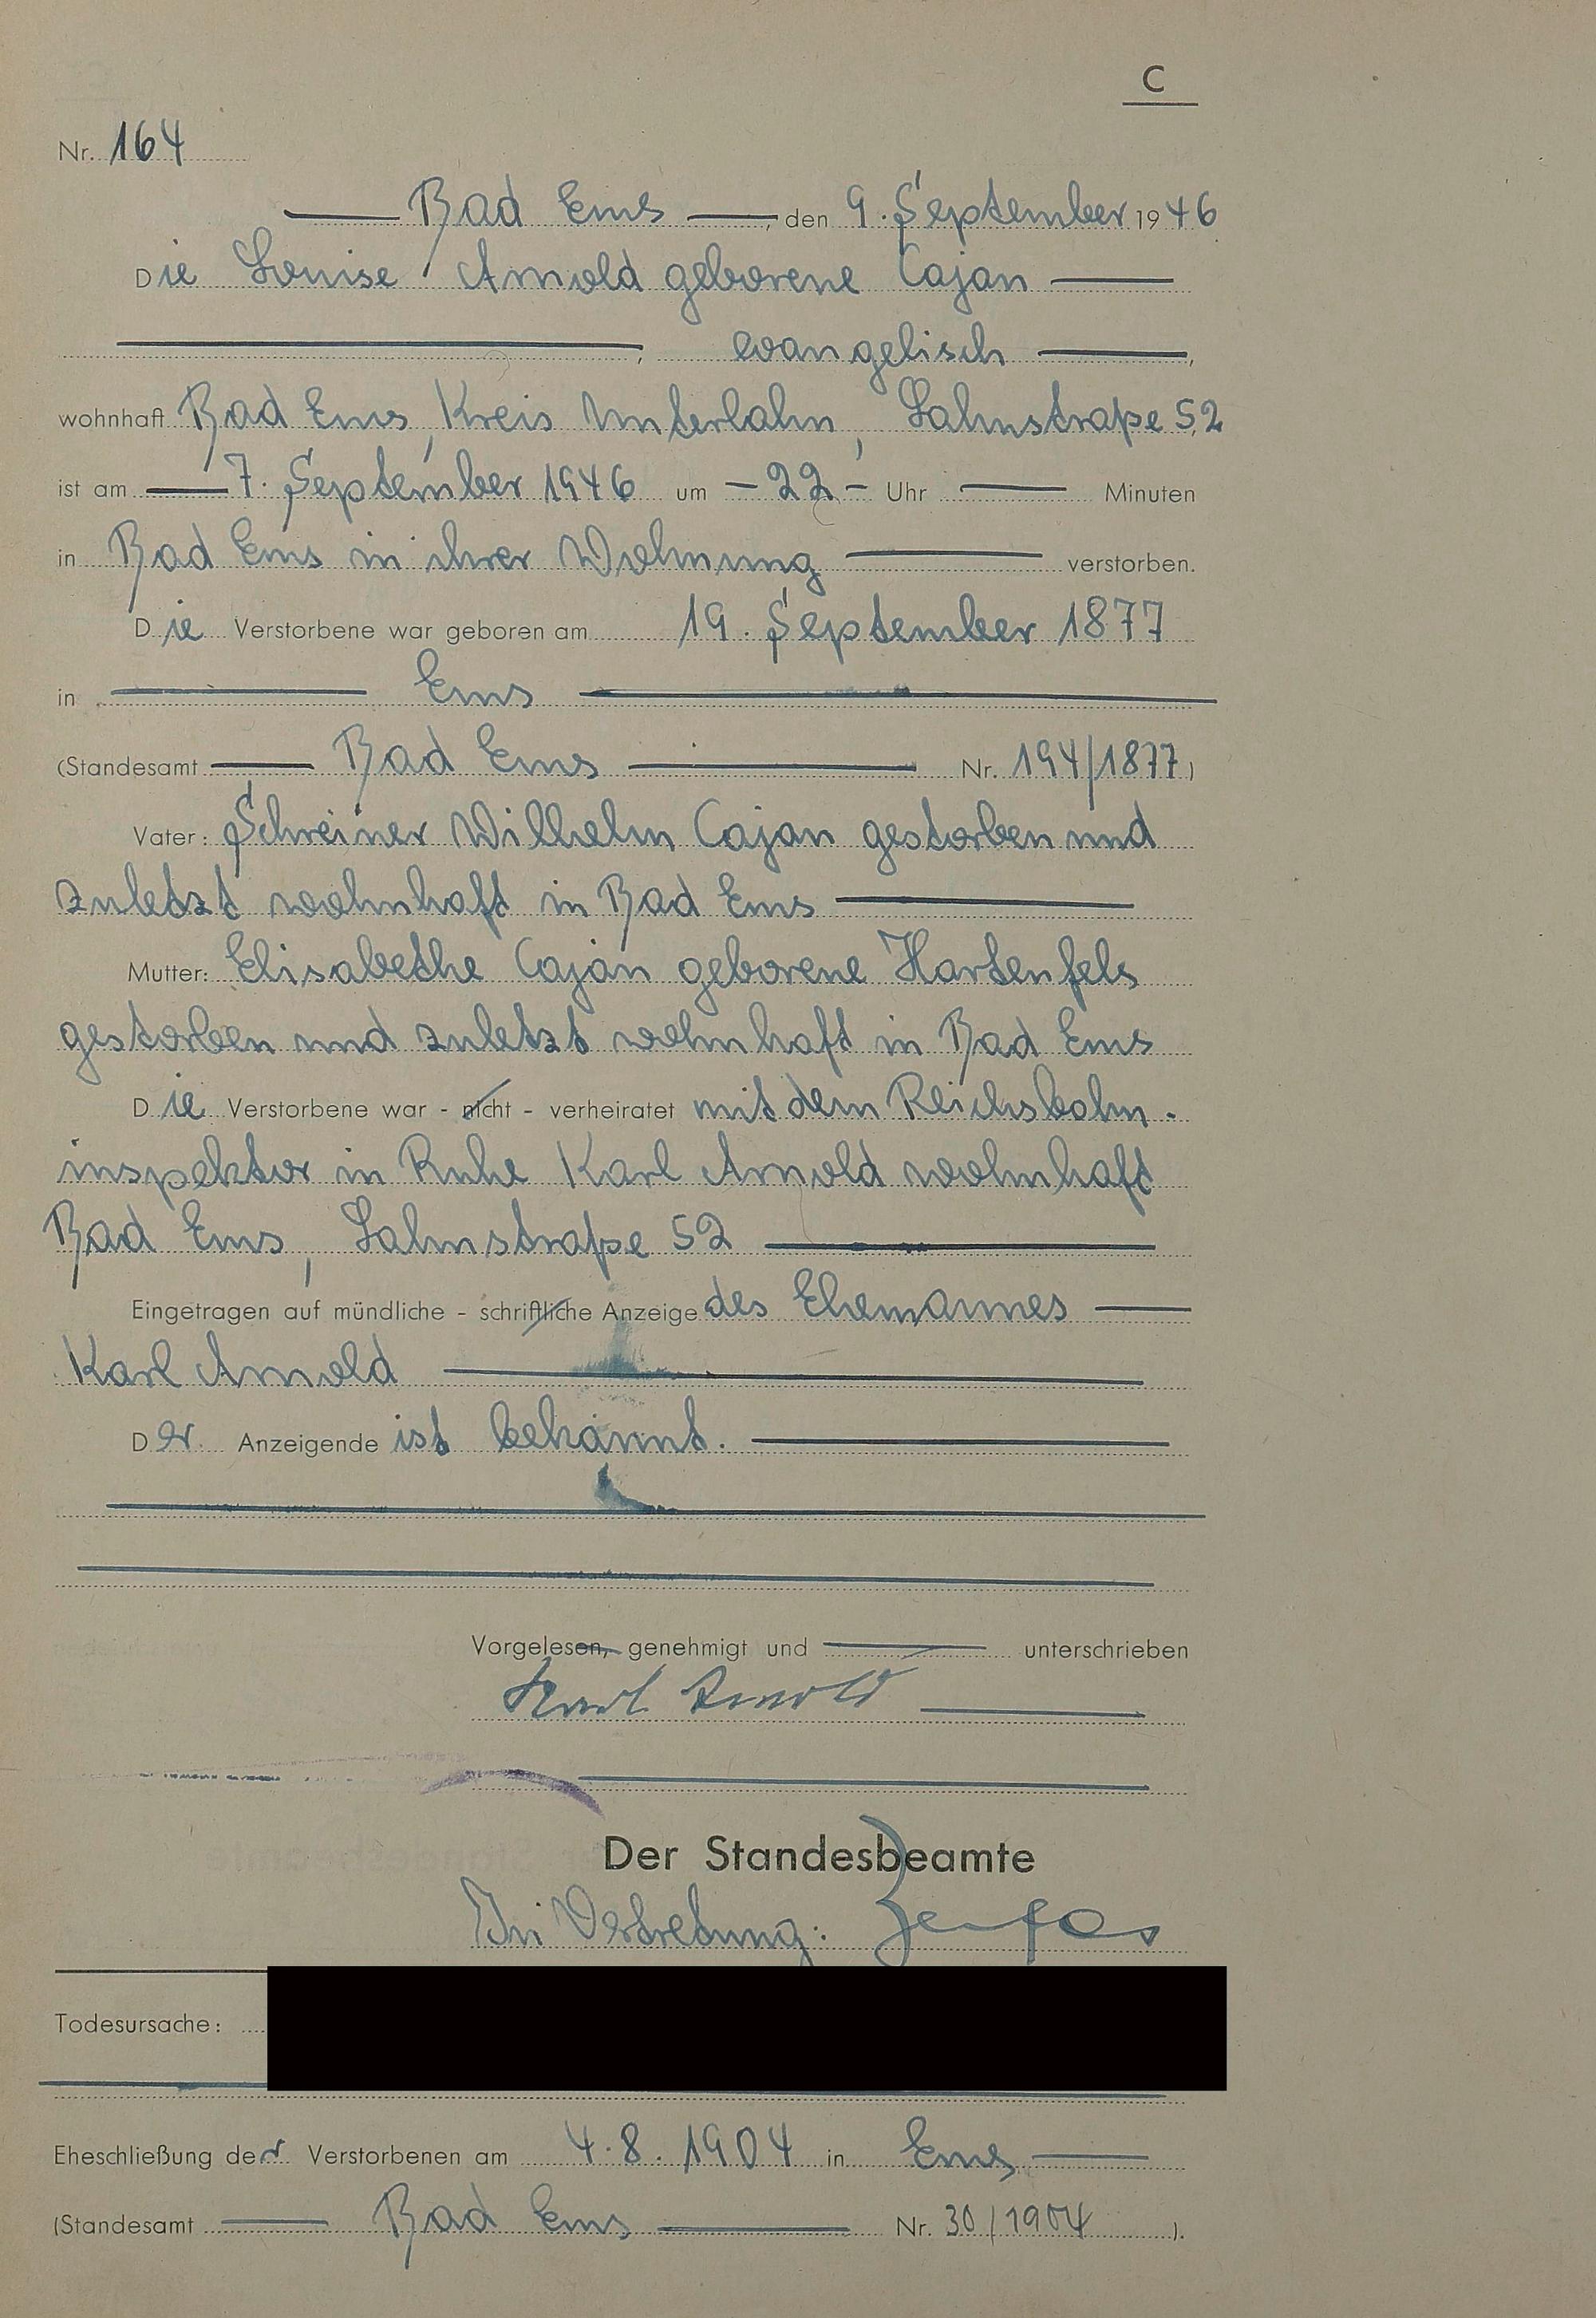 C
Nr. 164
Bad Ems, den 9. September 1946
Die Louise Arnold geborene Cajan
, evangelisch,
wohnhaft Bad Ems, Kreis Unterlahn, Lahnstraße 52
ist am 7. September 1946 um - 22 - Uhr Minuten
in Bad Ems in ihrer Wohnung verstorben.
Die Verstorbene war geboren am 19. September 1877
in Ems
(Standesamt Bad Ems Nr. 194/1877)
Vater: Schreiner Wilhelm Cajan gestorben und
zuletzt wohnhaft in Bad Ems
Mutter: Elisabethe Cajan geborene Hartenfels
gestorben und zuletzt wohnhaft in Bad Ems
Die Verstorbene war - nicht - verheiratet mit dem Reichsbahn-
inspektor in Ruhe Karl Arnold wohnhaft
Bad Ems, Lahnstraße 52
Eingetragen auf mündliche - schriftliche Anzeige des Ehemannes
Karl Arnold
Der Anzeigende ist bekannt.
Vorgelesen, genehmigt und unterschrieben
Karl Arnold
Der Standesbeamte
In Vertretung:
Todesursache:
Eheschließung der Verstorbenen am 4.8.1904 in Ems
(Standesamt Bad Ems Nr. 30/1904).